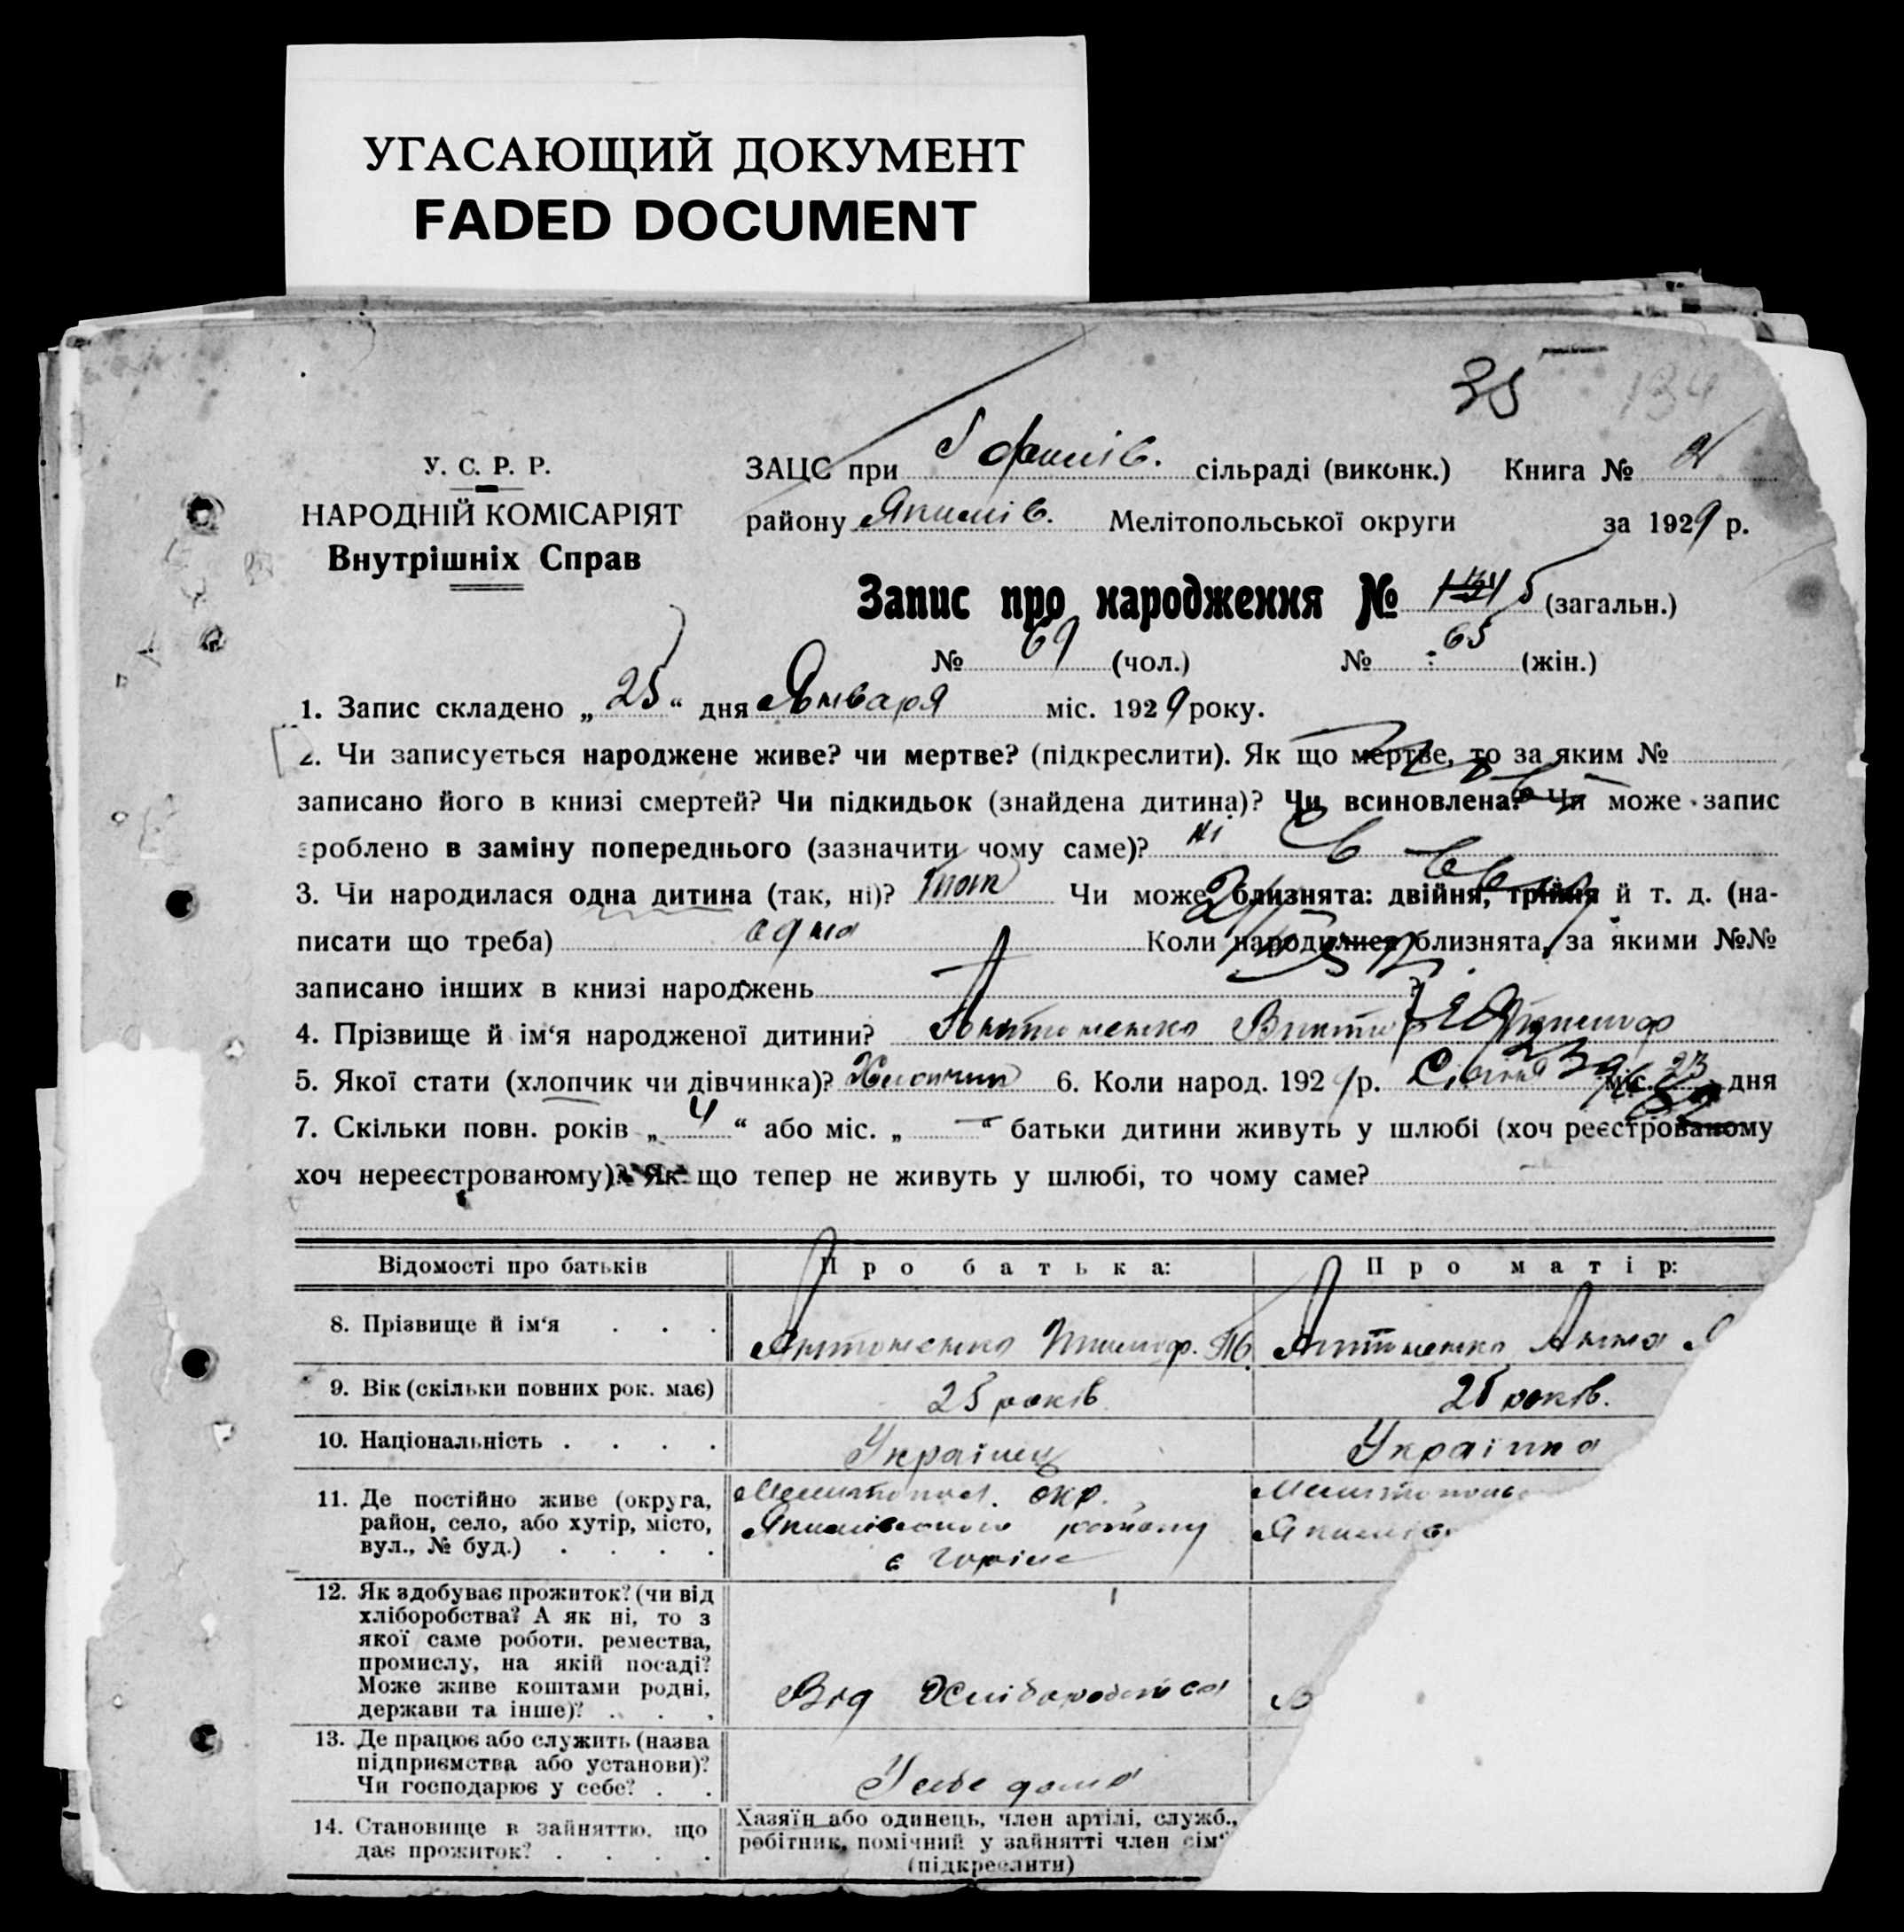 УГАСАЮЩИЙ ДОКУМЕНТ
FADED DOCUMENT
35
134
У. С. Р. Р.
НАРОДНІЙ КОМІСАРІЯТ
Внутрішніх Справ
ЗАЦС при сільраді (виконк.) Книга №
району Якимів. Мелітопольської округи за 1929 р.
Запис про народження № 5 (загальн.)
№ 69 (чол.) № 65 (жін.)
1. Запис складено „25“ дня Января міс. 1929 року.
2. Чи записується народжене живе? чи мертве? (підкреслити). Як що мертве, то за яким №
записано його в книзі смертей? Чи підкидьок (знайдена дитина)? Чи всиновлена? Чи може запис
зроблено в заміну попереднього (зазначити чому саме)? ні
3. Чи народилася одна дитина (так, ні)? так Чи може близнята: двійня, трійня й т. д. (на-
писати що треба) одна Коли народилися близнята, за якими №№
записано інших в книзі народжень
4. Прізвище й ім‘я народженої дитини? Антоненко Виктор
5. Якої стати (хлопчик чи дівчинка)? Хлопчик 6. Коли народ. 1929 р. міс. 23 дня
7. Скільки повн. років „4“ або міс. „—“ батьки дитини живуть у шлюбі (хоч реєстрованому
хоч нереєстрованому)? Як що тепер не живуть у шлюбі, то чому саме?
Відомості про батьків Про батька: Про матір:
8. Прізвище й ім‘я . . . Антоненко Тимоф. Антоненко Анна
9. Вік (скільки повних рок. має) 25 років 25 років.
10. Національність . . . . Українец Українка
11. Де постійно живе (округа, район, село, або хутір, місто, вул., № буд.) . . . . Мелитопол. окр.
Якимівского району
Мелитополь
Якимів
12. Як здобуває прожиток? (чи від хліборобства? А як ні, то з якої саме роботи, ремества, промислу, на якій посаді? Може живе коштами родні, держави та інше)? . . . Від Хліборобства
13. Де працює або служить (назва підприємства або установи)? Чи господарює у себе? . . У себе дома
14. Становище в зайняттю, що дає прожиток? . . . . Хазяїн або одинець, член артілі, служб.,
робітник, помічний у зайнятті член сім‘
(підкреслити)